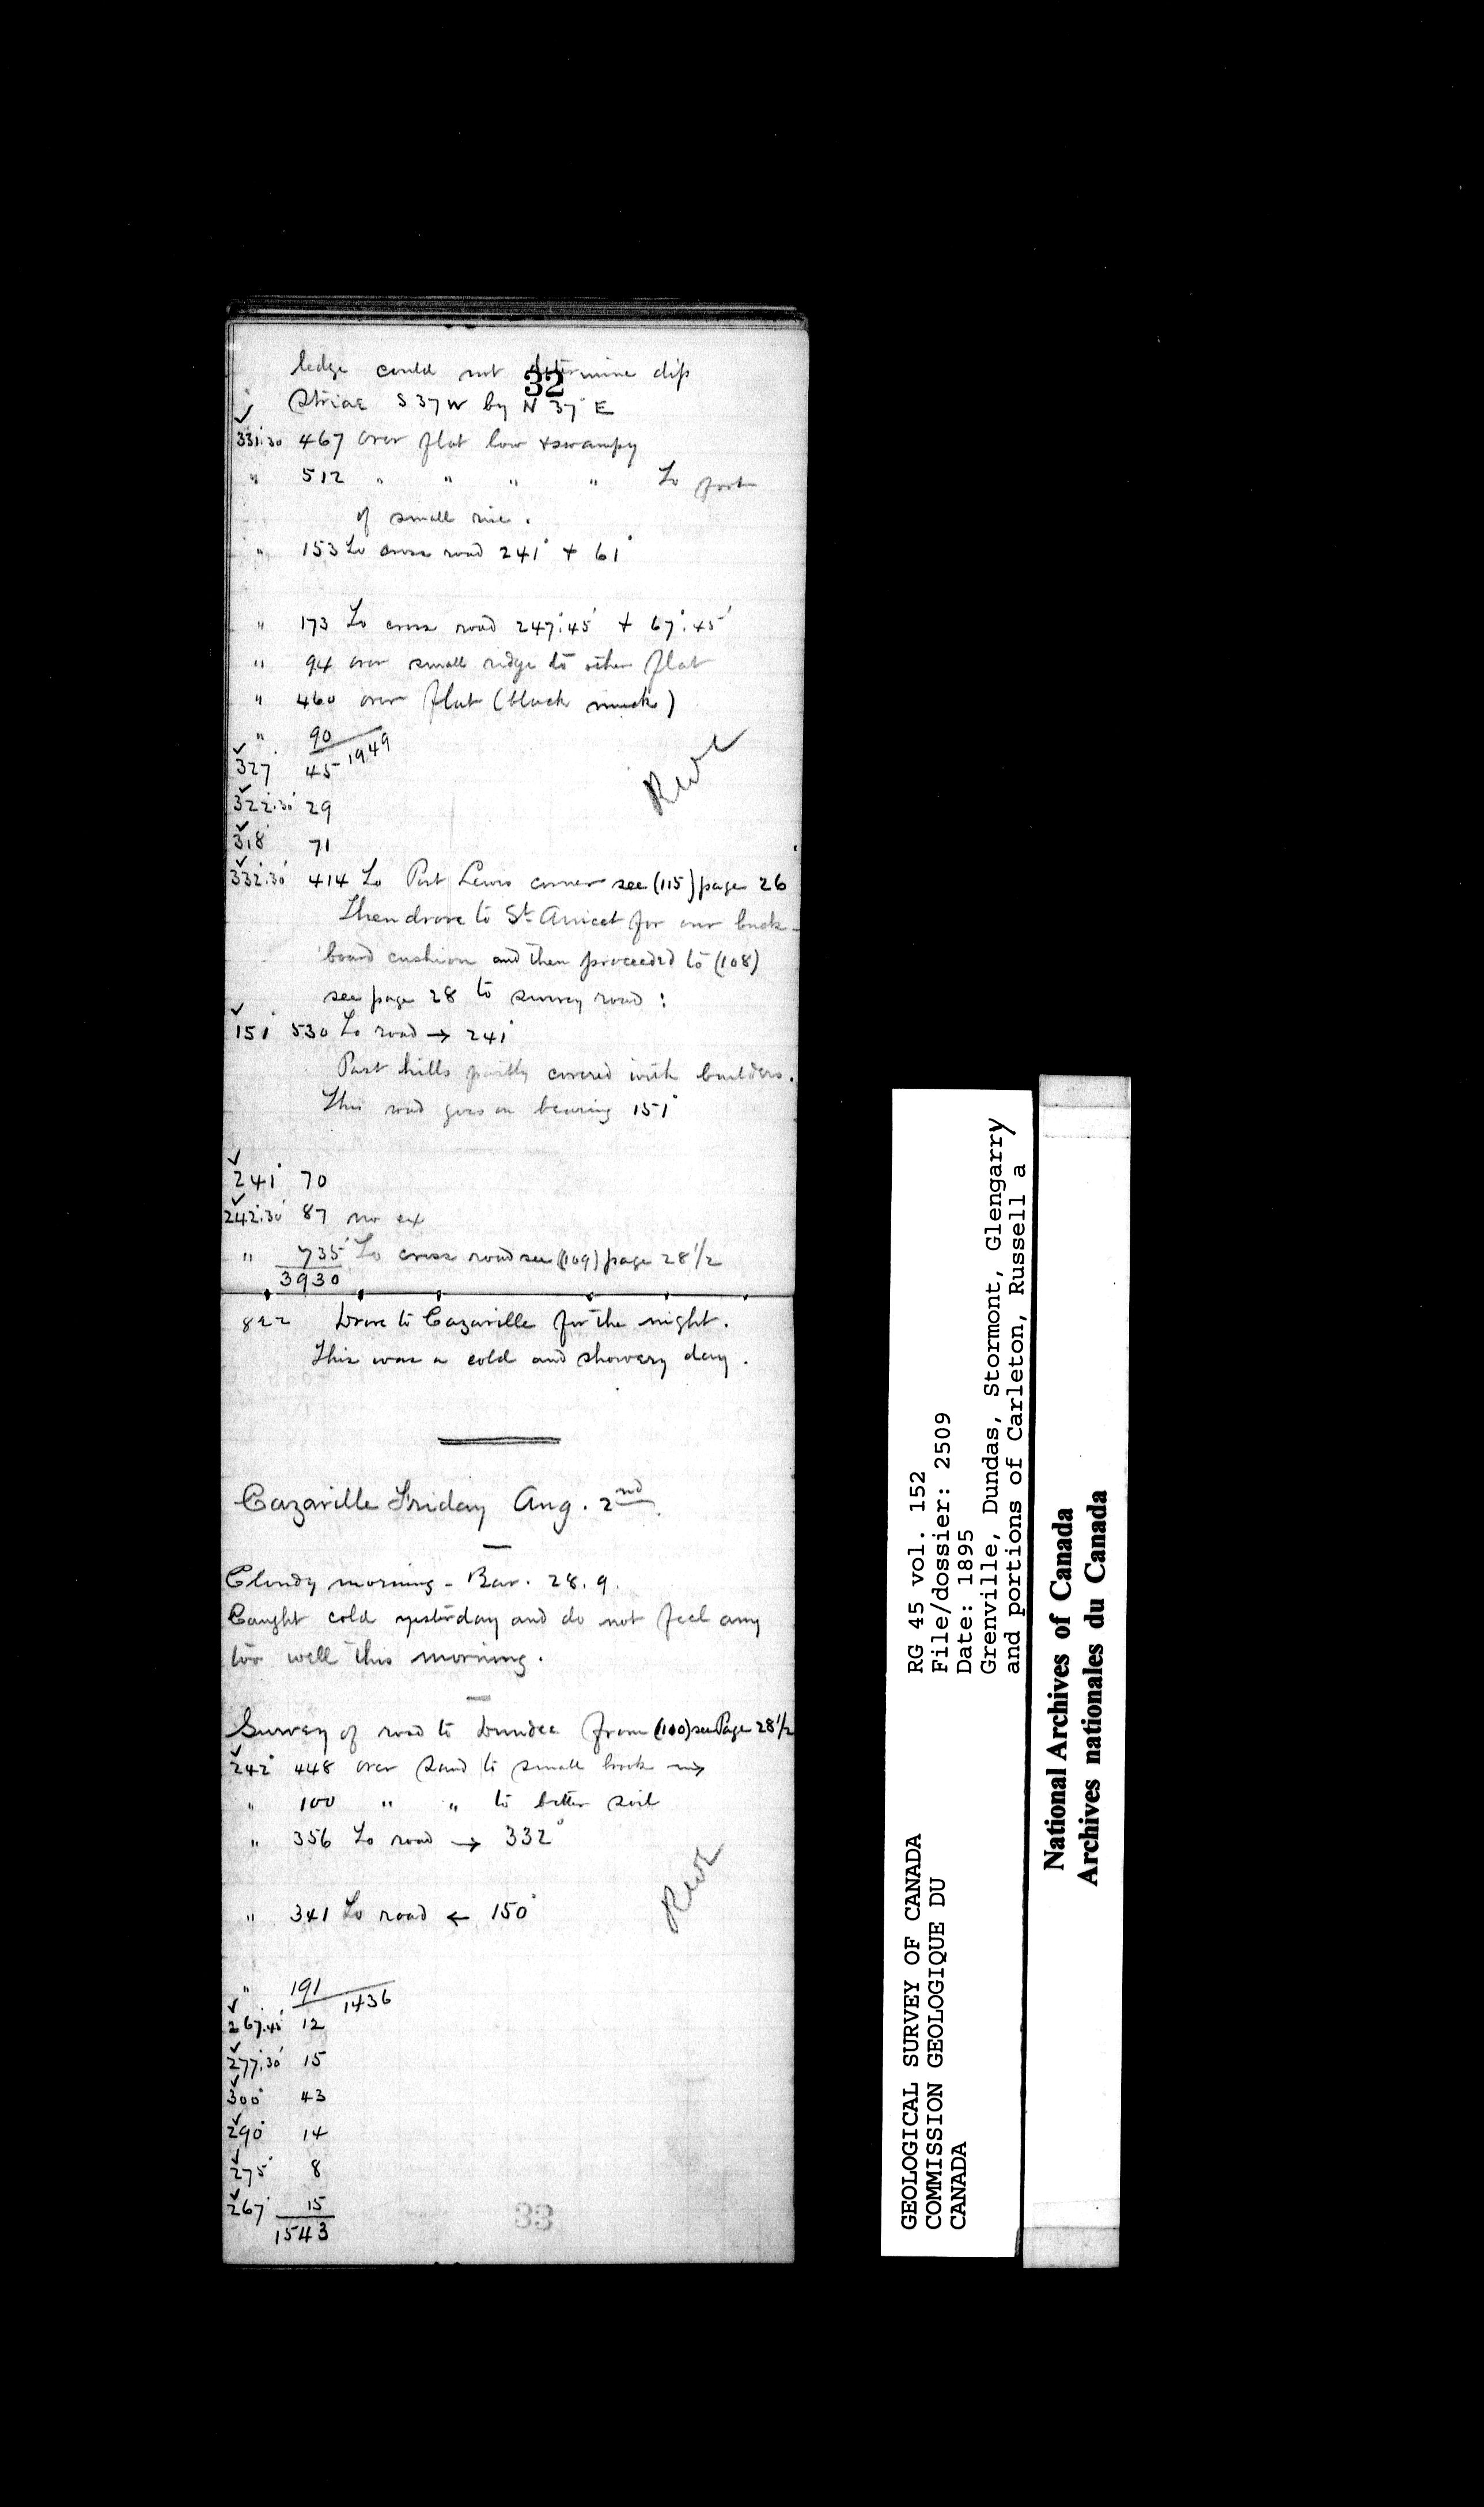 32
ledge could not determine dip
Striae S 37 W by N 37° E
331°.30 467 over flat low + swampy
" 512 " " " " To foot
of small rise.
" 153 To cross road 241° + 61°
" 173 To cross road 247°.45' + 67°.45'
" 94 over small ridge to other flat
" 460 over flat (black muck)
" 90
1949
327 45
322°.30' 29
318° 71
332°.30' 414 To Port Lewis corner see (115) page 26
Then drove to St. Anicet for our buck-
board cushion and then proceeded to (108)
see page 28 to survey road :
151° 530 To road → 241°
Past hills partly covered with boulders.
This road goes on bearing 151°
241° 70
242°.30' 87 no ex
" 735 To cross road see (109) page 28 1/2
3930
822 Drove to Cazaville for the night.
This was a cold and showery day.
Cazaville Friday Aug. 2nd
Cloudy morning - Bar. 28.9.
Caught cold yesterday and do not feel any
too well this morning.
Survey of road to Dundee from (100) see Page 28 1/2
242° 448 over sand to small brook →
" 100 " " to better soil
" 356 To road → 332°
" 341 To road ← 150°
" 191
1436
267°.45' 12
277°.30' 15
300° 43
290° 14
275° 8
267° 15
1543
33
GEOLOGICAL SURVEY OF CANADA
COMMISSION GEOLOGIQUE DU
CANADA
RG 45 vol. 152
File/dossier: 2509
Date: 1895
Grenville, Dundas, Stormont, Glengarry
and portions of Carleton, Russell a
National Archives of Canada
Archives nationales du Canada